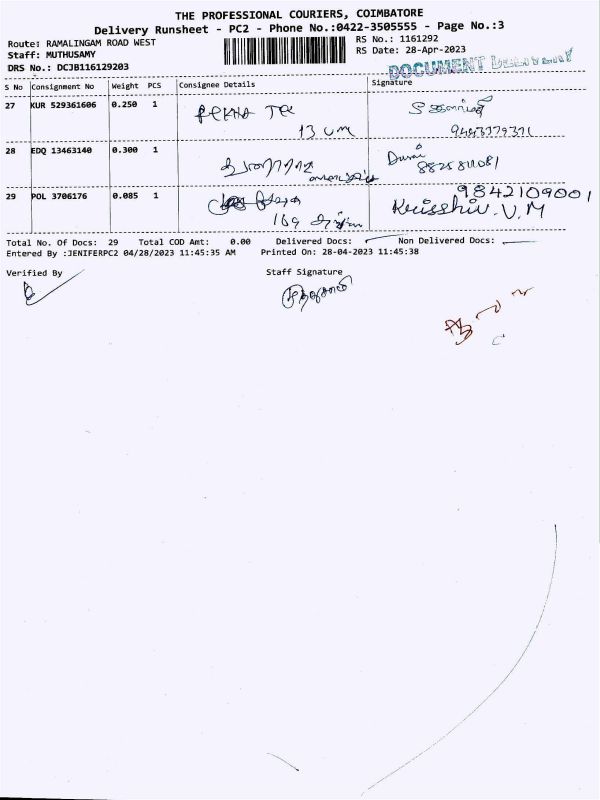 THE PROFESSIONAL COURIERS, COIMBATORE
Delivery Runsheet - PC2 - Phone No.:0422-3505555 - Page No.:3
Route: RAMALINGAM ROAD WEST
RS No.: 1161292
Staff: MUTHUSAMY
RS Date: 28-Apr-2023
DRS No.: DCJB116129203
DOCUMENT DELIVERY
S No Consignment No Weight PCS Consignee Details Signature
27 KUR 529361606 0.250 1
28 EDQ 13463140 0.300 1
8825811081
29 POL 3706176 0.085 1
9842109001
Krisshiv.V.M
Total No. Of Docs: 29 Total COD Amt: 0.00 Delivered Docs: Non Delivered Docs:
Entered By :JENIFERPC2 04/28/2023 11:45:35 AM Printed On: 28-04-2023 11:45:38
Verified By Staff Signature